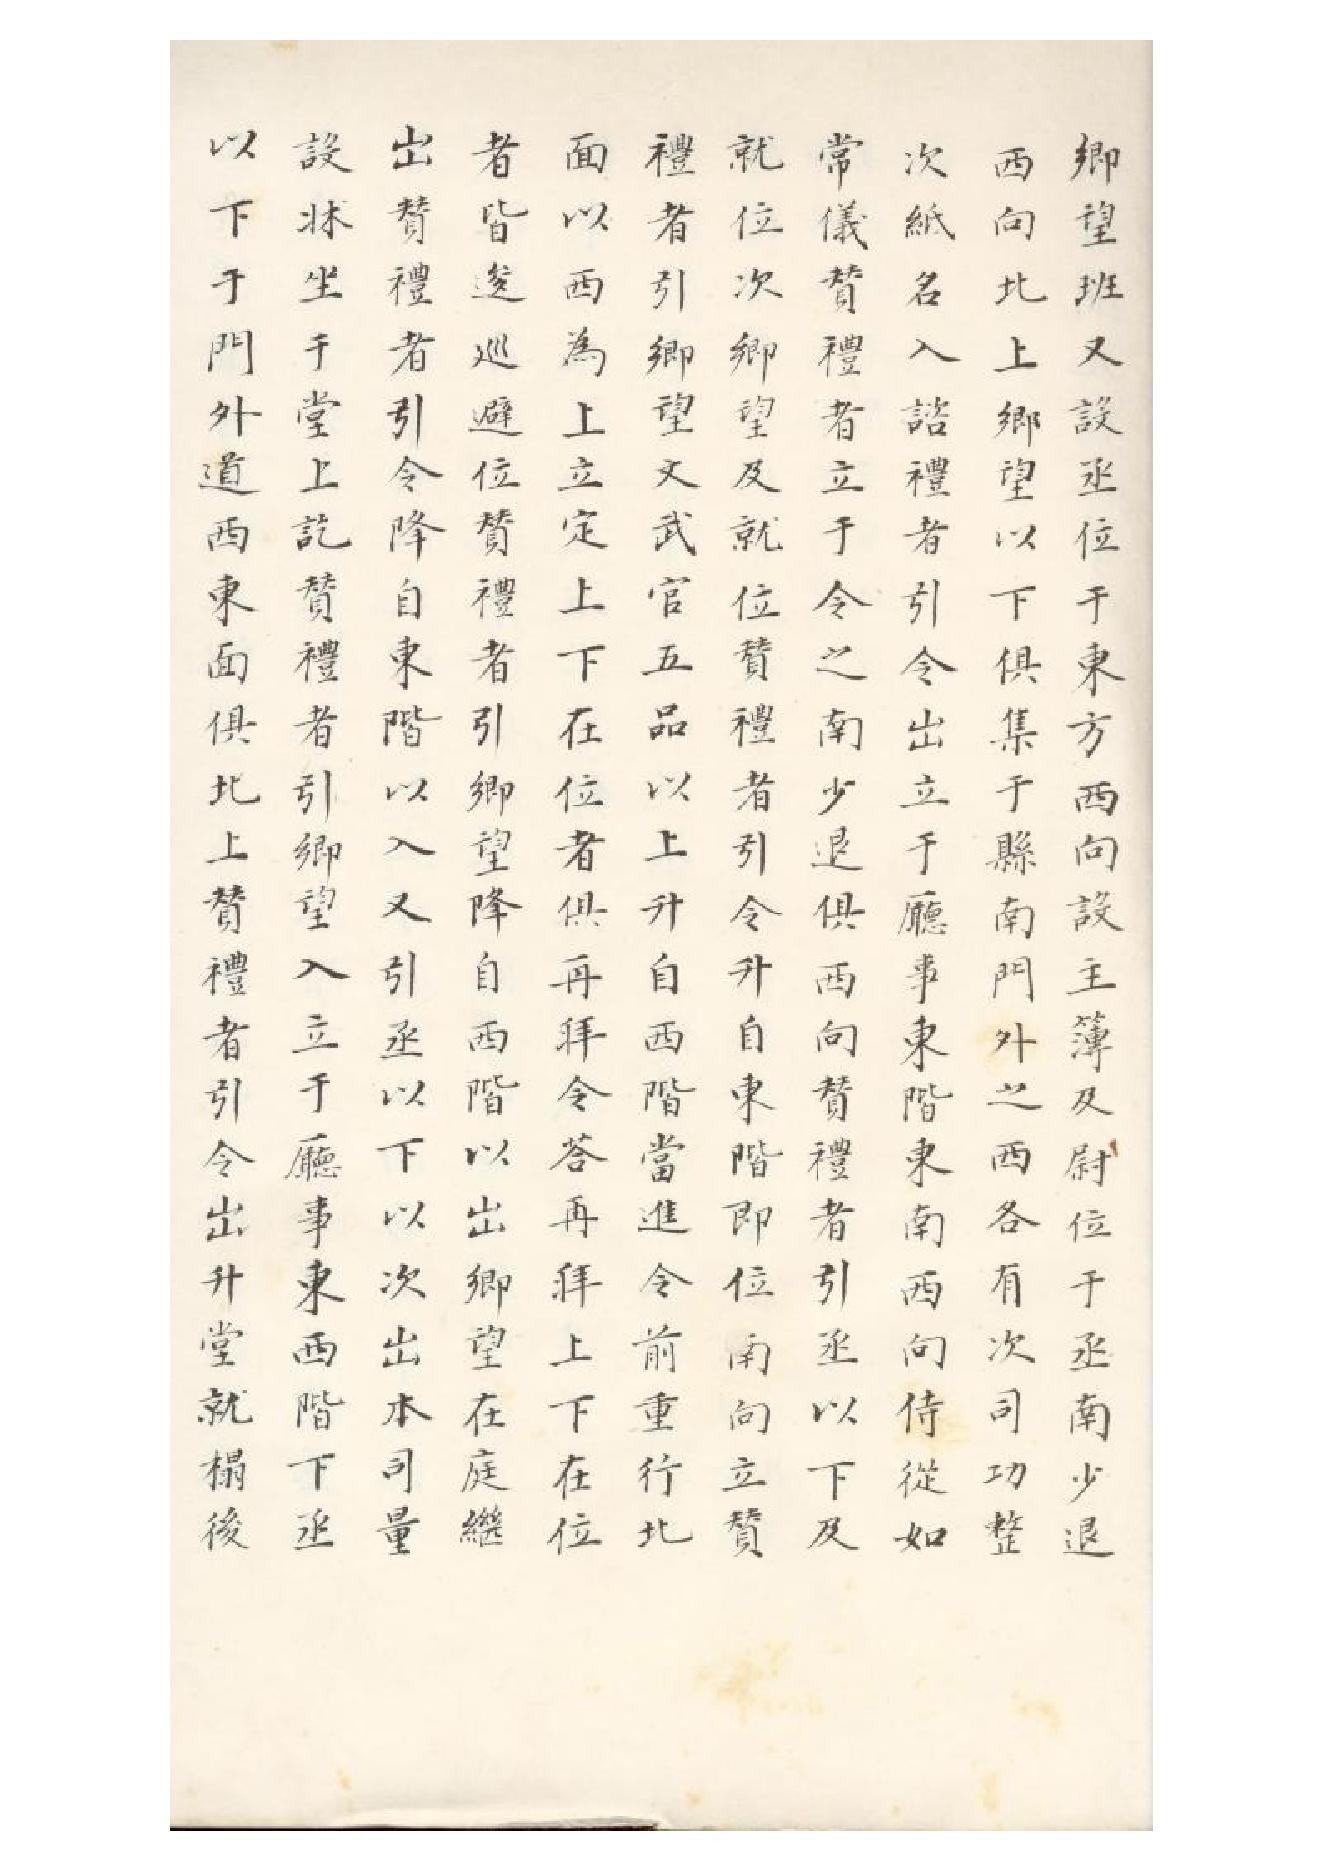 鄉望班又設丞位于東方西向設主簿及尉位于丞南少退
西向北上鄉望以下俱集于縣南門外之西各有次司功整
次紙名入諮禮者引令出立于廳事東階東南西向侍從如
常儀贊禮者立于令之南少退俱西向贊禮者引丞以下及
就位次鄉望及就位贊禮者引令升自東階即位南向立贊
禮者引鄉望文武官五品以上升自西階當進令前重行北
面以西為上立定上下在位者俱再拜令荅再拜上下在位
者皆逡巡避位贊禮者引鄉望降自西階以出鄉望在庭繼
出贊禮者引令降自東階以入又引丞以下以次出本司量
設牀坐于堂上訖贊禮者引鄉望入立于廳事東西階下丞
以下于門外道西東面俱北上贊禮者引令出升堂就榻後